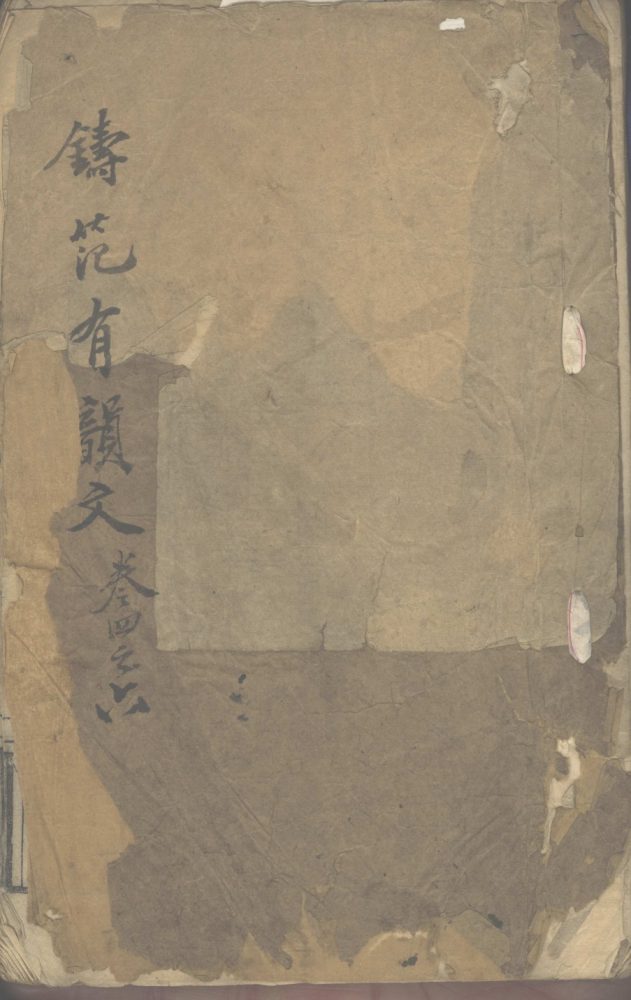 鑄范有韻文 卷四之六